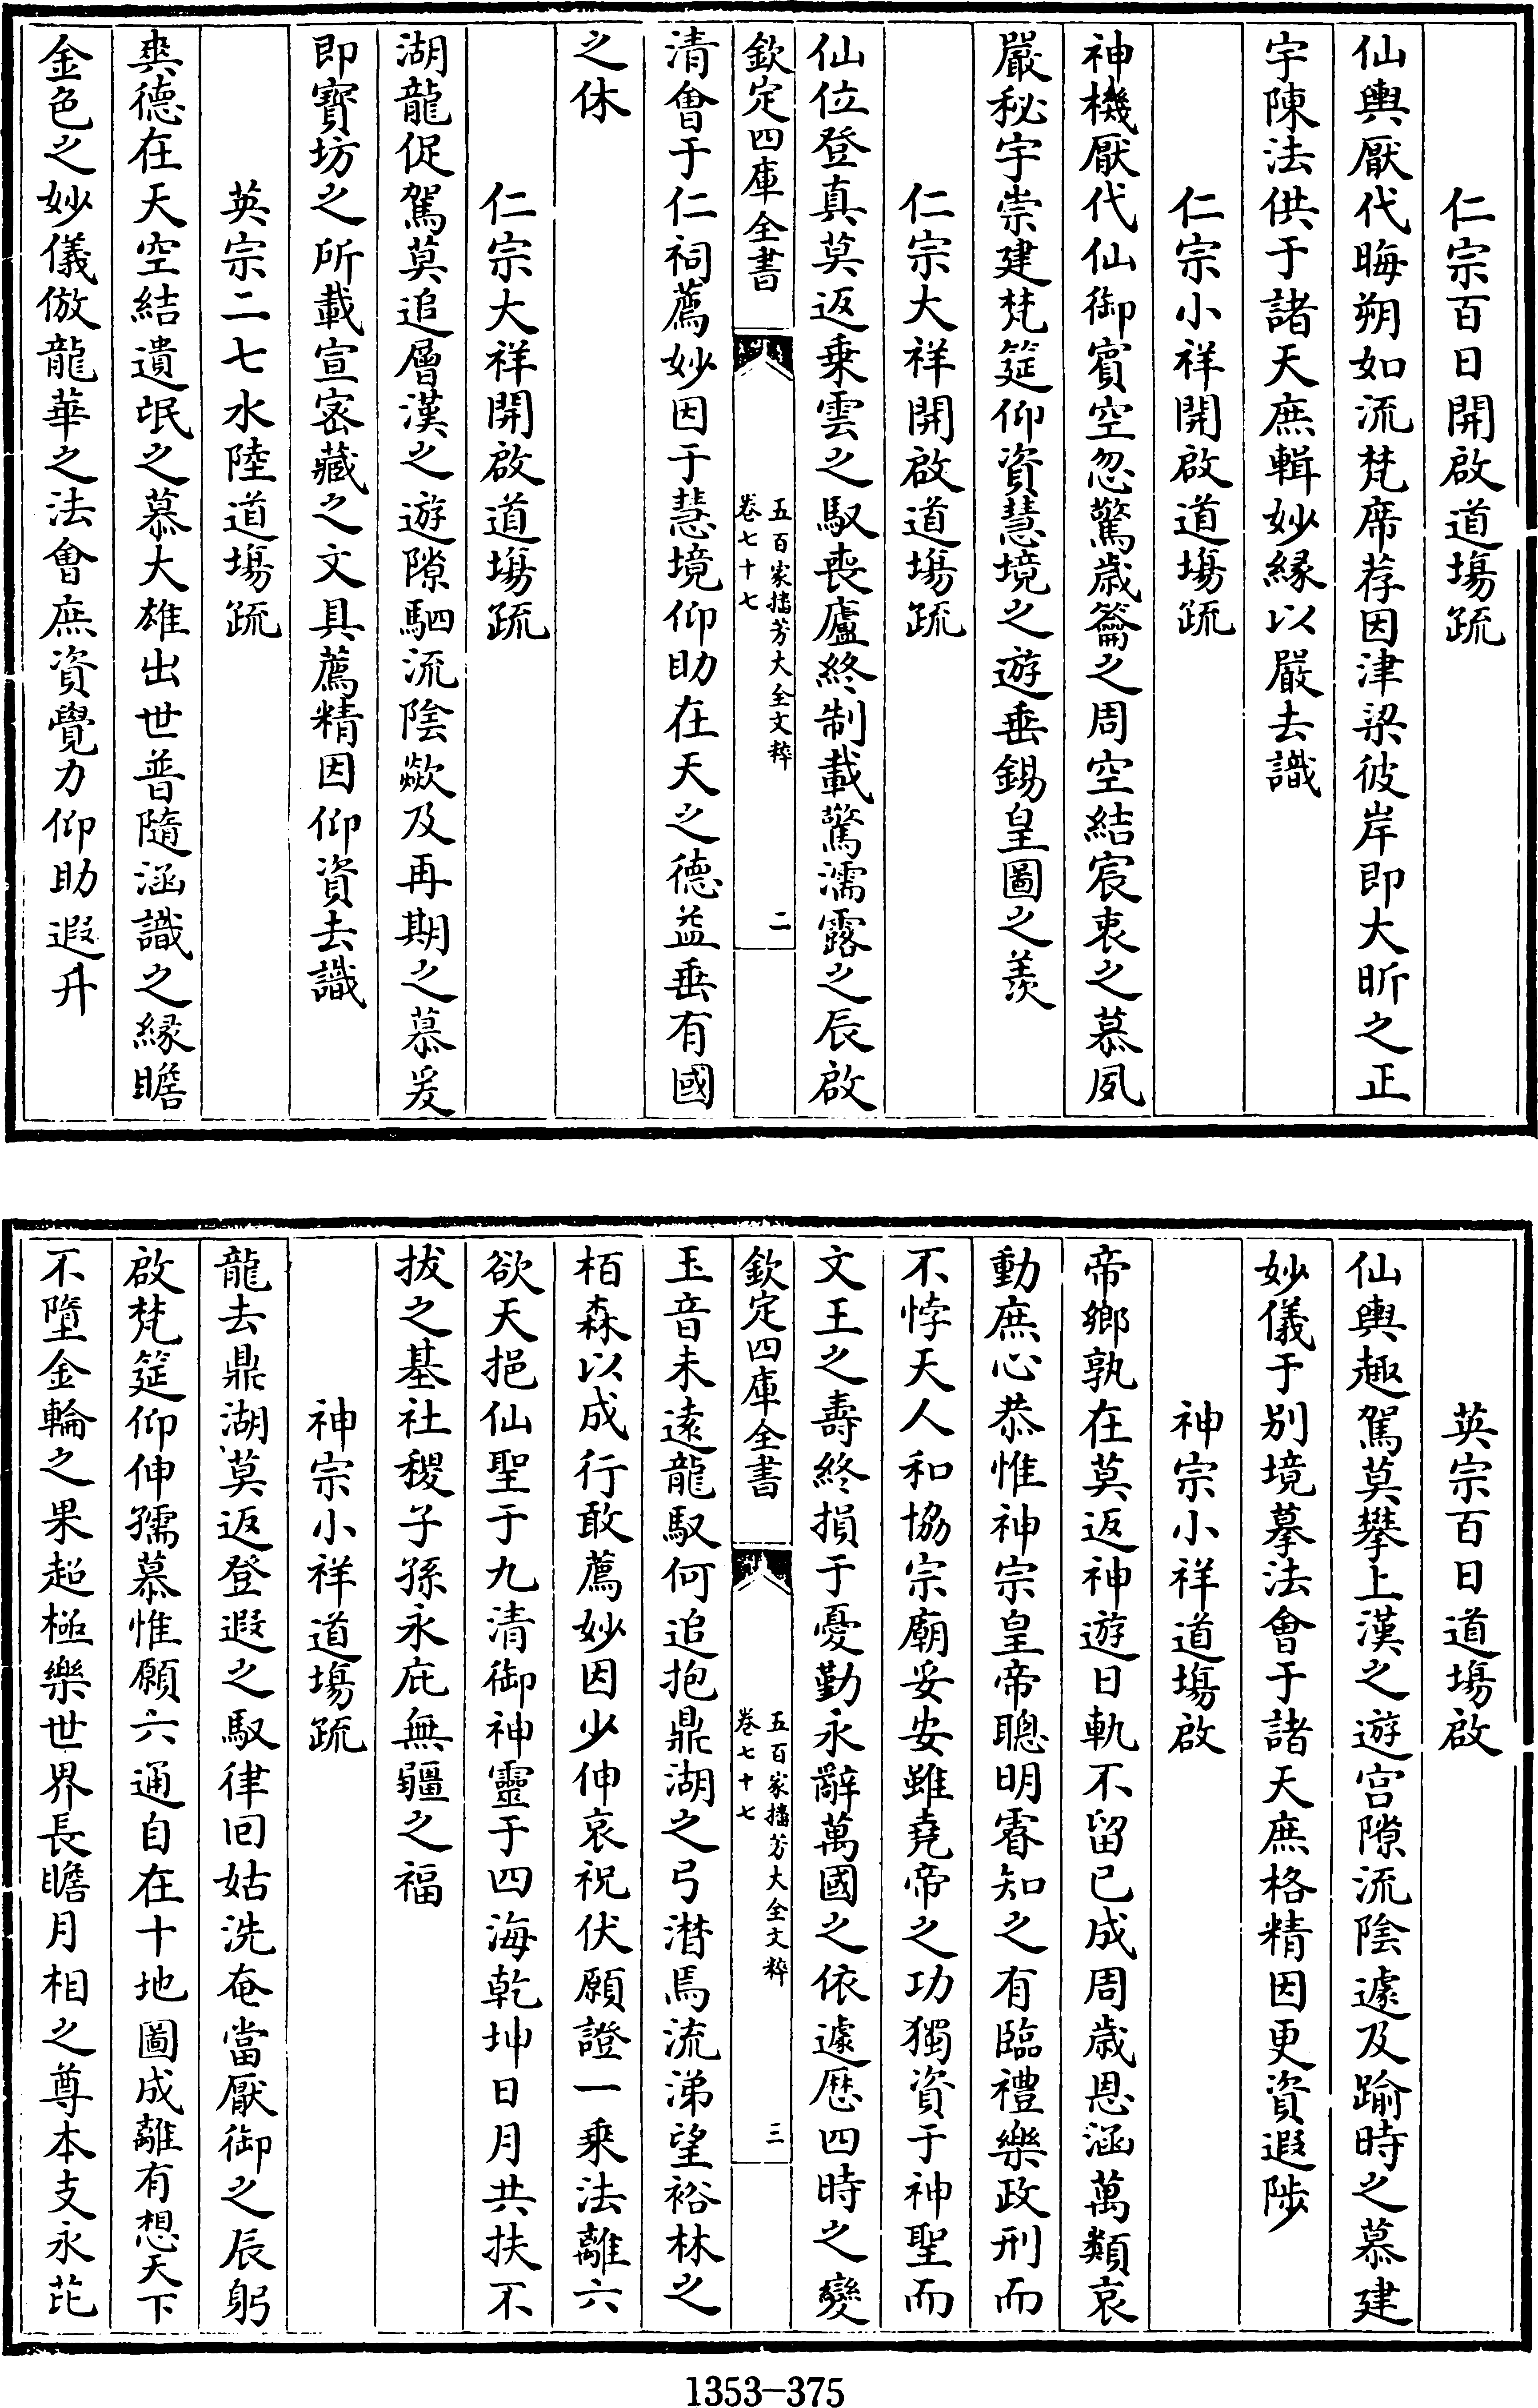 仁宗百日開啟道場疏
仙輿厭代晦朔如流梵席荐因津梁彼岸即大昕之正
宇陳法供于諸天庶輯妙縁以嚴去識
仁宗小祥開啟道場疏
神機厭代仙御賔空忽驚歲籥之周空結宸衷之慕夙
嚴秘宇崇建梵筵仰資慧境之遊垂錫皇圖之羨
仁宗大祥開啟道場疏
仙位登真莫返乗雲之馭喪廬終制載驚濡露之辰啟
欽定四庫全書
五百家播芳大全文粹
卷七十七
二
清會于仁祠薦妙因于慧境仰助在天之德益垂有國
之休
仁宗大祥開啟道場疏
湖龍促駕莫追層漢之遊隙駟流陰歘及再期之慕爰
即寳坊之所載宣宻藏之文具薦精因仰資去識
英宗二七水陸道場疏
奭德在天空結遺氓之慕大雄出世普隨涵識之縁瞻
金色之妙儀倣龍華之法會庶資覺力仰助遐升
英宗百日道場啟
仙輿趣駕莫攀上漢之遊宫隙流陰遽及踰時之慕建
妙儀于别境摹法會于諸天庶格精因更資遐陟
神宗小祥道場啟
帝鄉孰在莫返神遊日軌不留已成周歲恩涵萬類哀
動庶心恭惟神宗皇帝聰明睿知之有臨禮樂政刑而
不悖天人和協宗廟妥安雖堯帝之功獨資于神聖而
文王之壽終損于憂勤永辭萬國之依遽歴四時之變
欽定四庫全書
五百家播芳大全文粹
卷七十七
三
玉音未逺龍馭何追抱鼎湖之弓潸焉流涕望裕林之
栢森以成行敢薦妙因少伸哀祝伏願證一乗法離六
欲天挹仙聖于九清御神靈于四海乾坤日月共扶不
拔之基社稷子孫永庇無疆之福
神宗小祥道場疏
龍去鼎湖莫返登遐之馭律回姑洗奄當厭御之辰躬
啟梵筵仰伸孺慕惟願六通自在十地圖成離有想天下
不墮金輪之果超極樂世界長瞻月相之尊本支永芘
1353-375